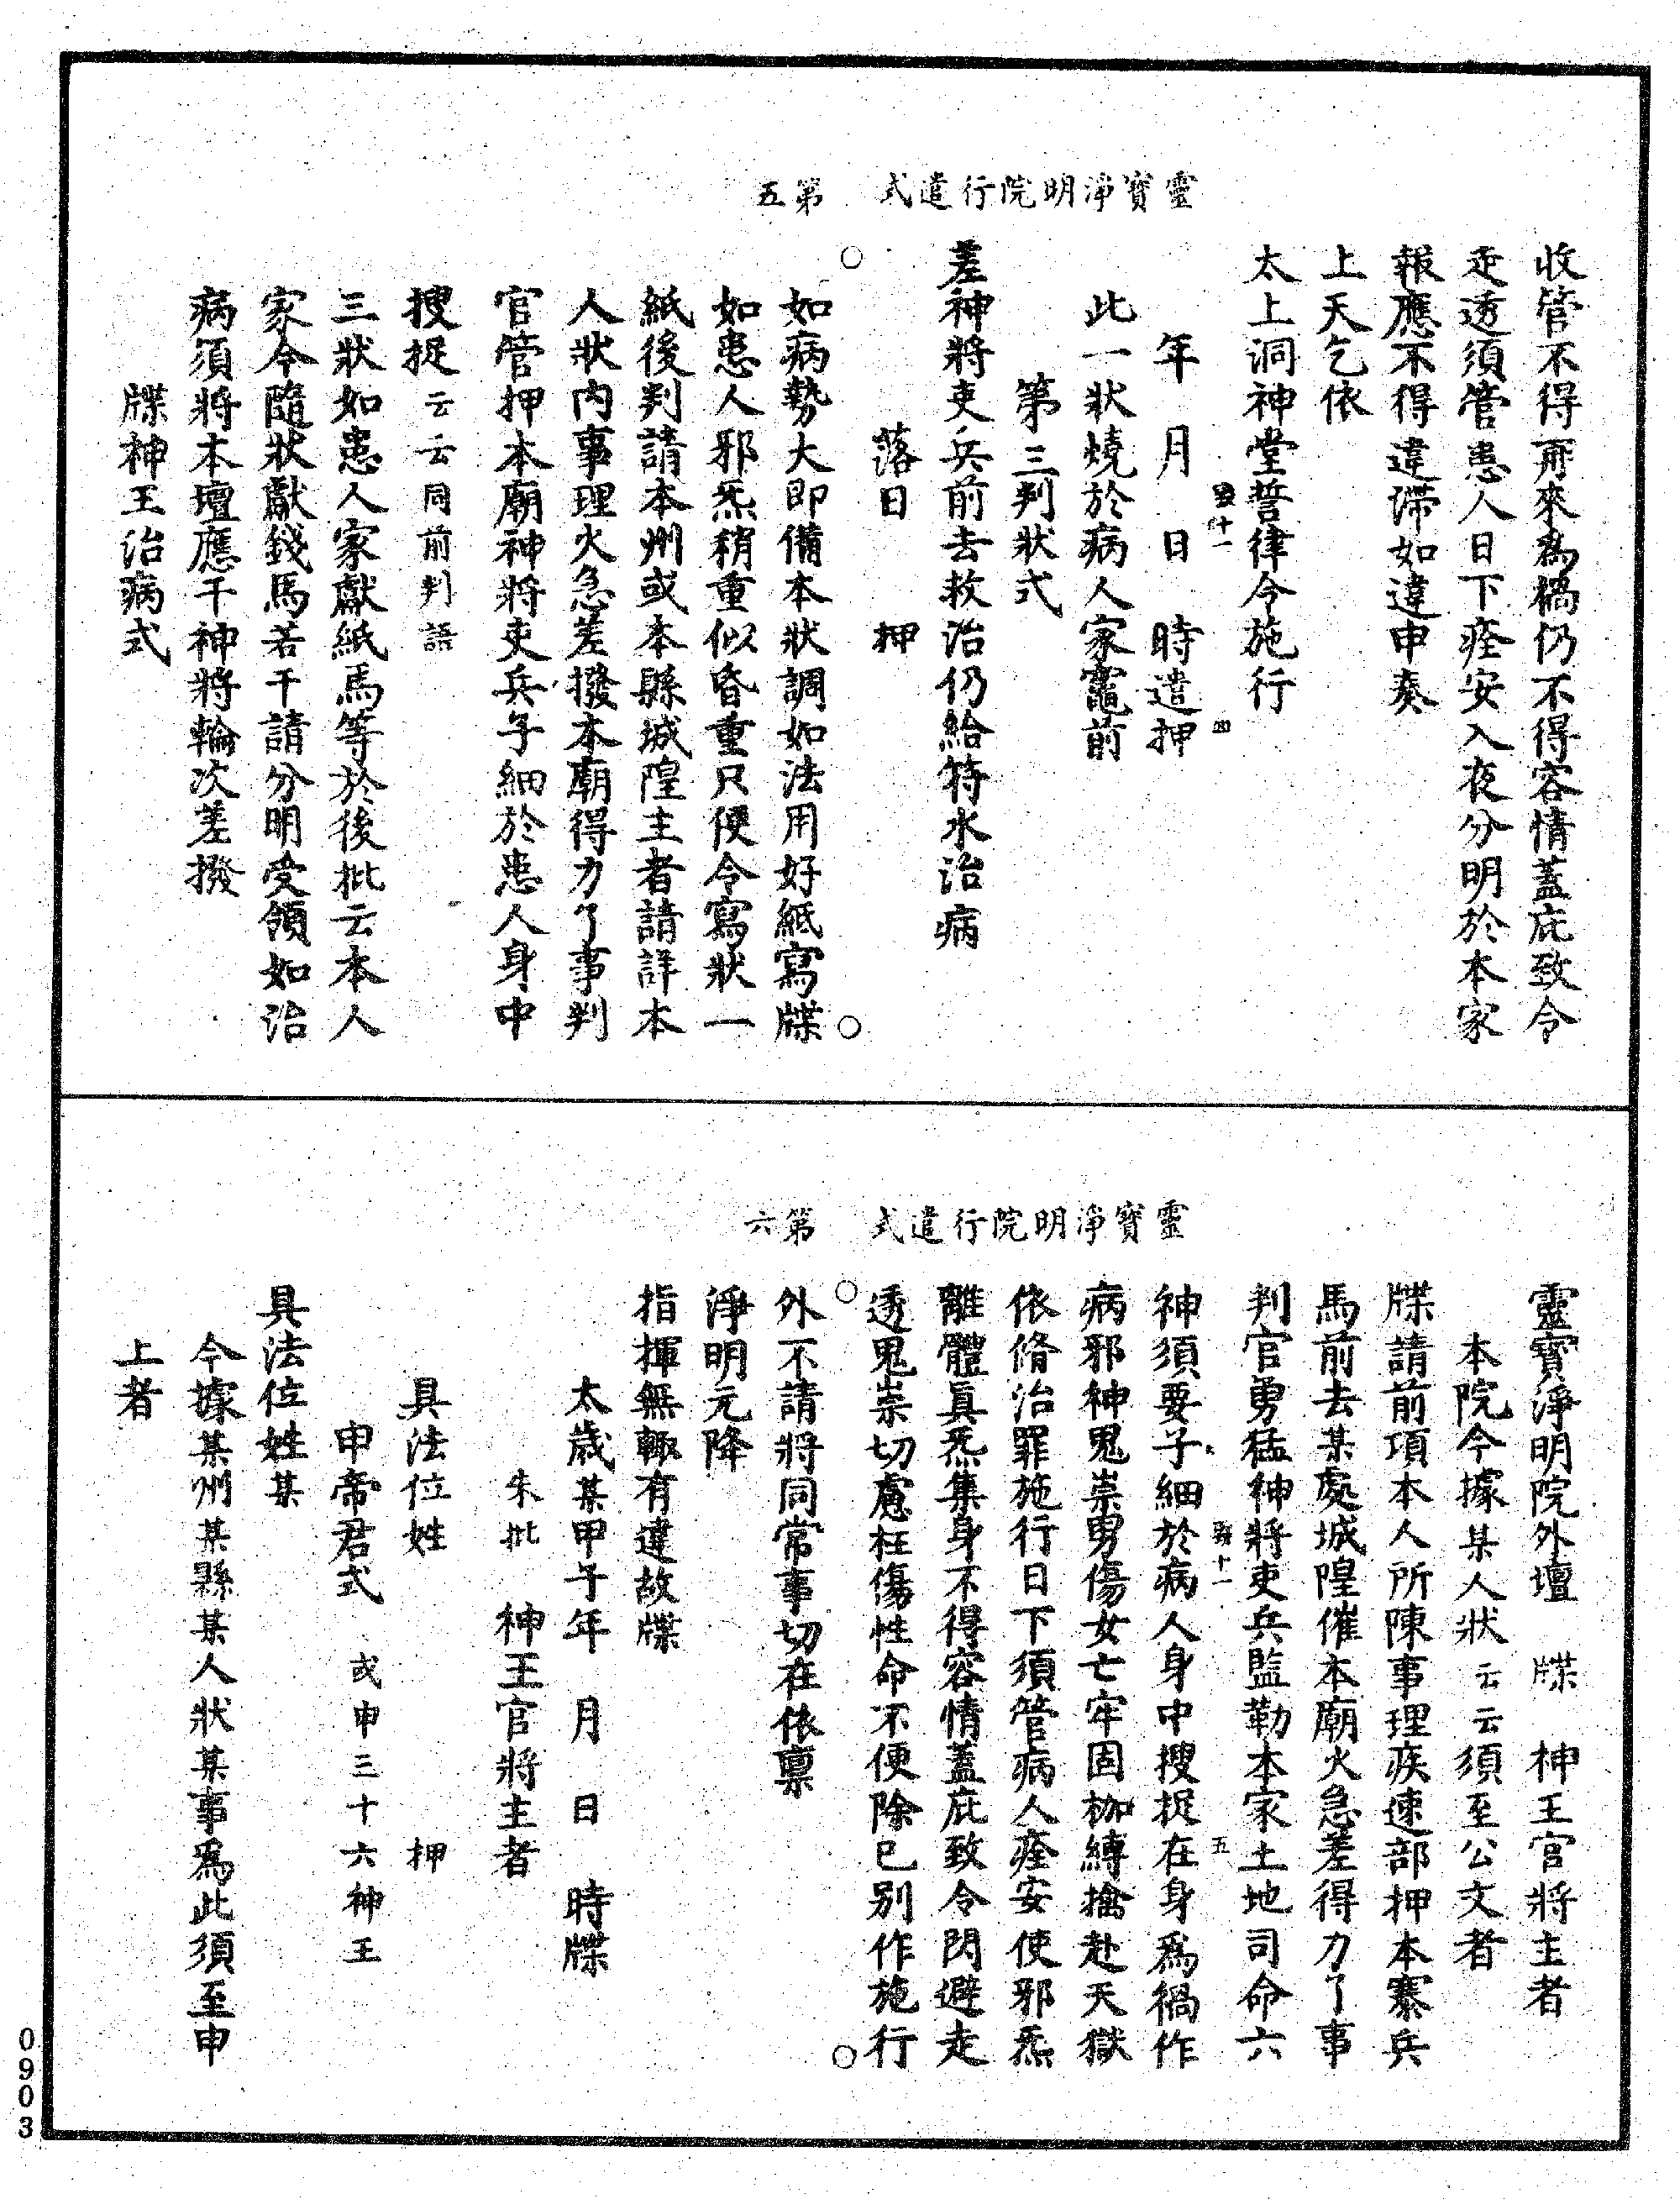 靈寶淨明院行遣式　第五
收管不得再來爲禍仍不得容情蓋庇致令
走透須管患人日下痊安入夜分明於本家
報應不得違滯如違申奏
上天乞依
太上洞神堂誓律令施行
十一　四
年　月　日　時遣押
此一狀燒於病人家竈前
第三判狀式
差神將吏兵前去救治仍給符水治病
落日　押
如病勢大即備本狀調如法用好紙寫牒
如患人邪炁稍重似昏重只便令寫狀一
紙後判請本州或本縣城隍主者請詳本
人狀內事理火急差撥本廟得力了事判
官管押本廟神將吏兵子細於患人身中
搜捉云云同前判語
三狀如患人家獻紙馬等於後批云本人
家今隨狀獻錢馬若干請分明受領如治
病須將本壇應干神將輪次差撥
牒神王治病式
靈寶淨明院行遣式　第六
靈寶淨明院外壇　牒　神王官將主者
本院今據某人狀云云須至公文者
牒請前項本人所陳事理疾速部押本寨兵
馬前去某處城隍催本廟火急差得力了事
判官勇猛神將吏兵監勒本家土地司命六
十一　五
神須要子細於病人身中搜捉在身爲禍作
病邪神鬼祟男傷女亡牢固枷縛擒赴天獄
依條治罪施行日下須管病人痊安使邪炁
離體眞炁集身不得容情蓋庇致令閃避走
透鬼祟切慮枉傷性命不便除已别作施行
外不請將同常事切在依稟
淨明元降
指揮無輙有違故牒
太歲某甲子年　月　日　時牒
朱批　神王官將主者
具法位姓　押
申帝君式　或申三十六神王
具法位姓某
今據某州某縣某人狀某事爲此須至申
上者
0903